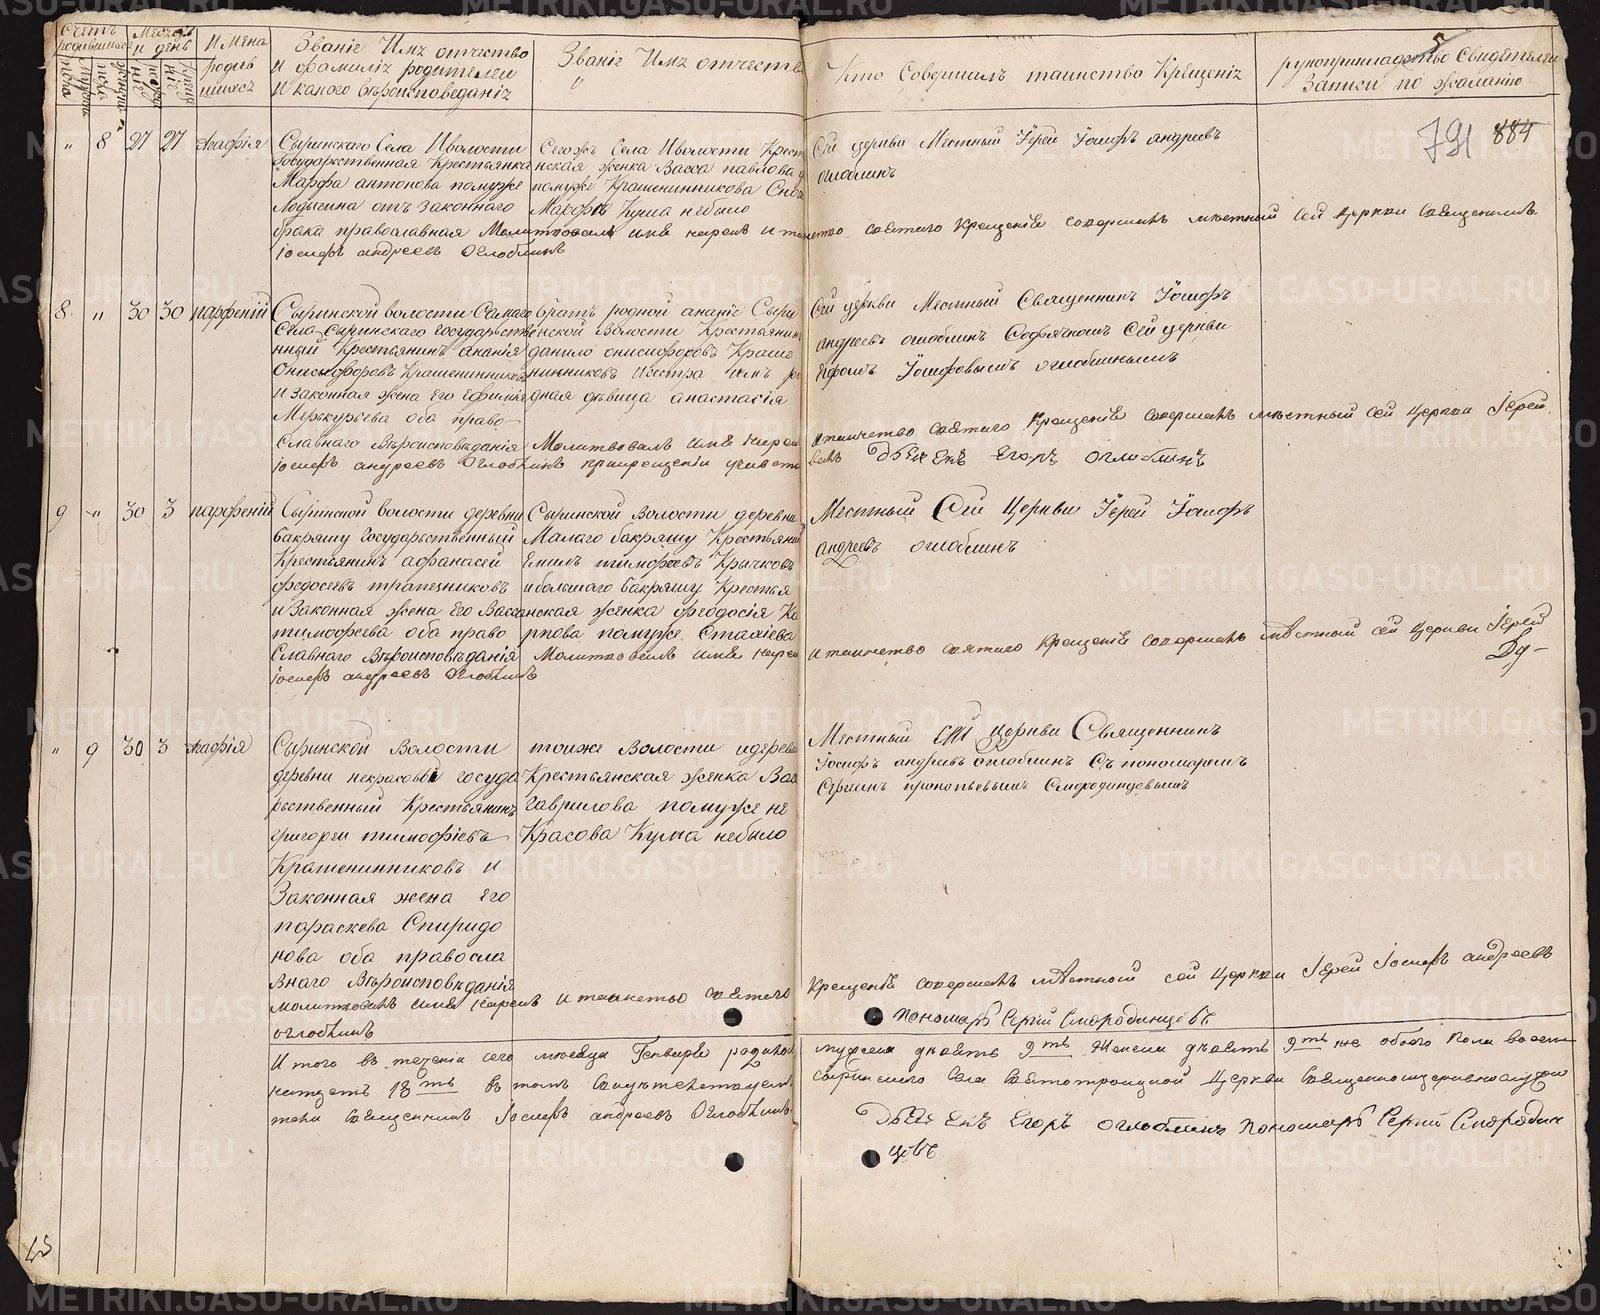 Счетъ родившихся
Месяцъ и день
Имена родив шихся
Званіе Имя отчество и фамилія родителей и какого вѣроисповеданія
Званіе Имя отчество
Кто Совершалъ таинство Крещенія
рукоприкладство Свидетелей Записи по желанію
5
791 884
" 8 27 27 Агафія
Сыринскаго Села Иволости
Государственная Крестьянка
Марфа антонова помуже
Лодыгина отъ законнаго
брака православная Молитвовалъ имя нарекъ и таинство святаго Крещенія совершалъ местный сей церкви священникъ
іосифъ андреевъ Оглоблинъ
Сегожъ Села Иволости Крест
нская женка Васса павлова
помуже Крашенинникова
Марфѣ Кума небыло
Сей церкви Местный Іерей Іосифъ андреевъ
оглоблинъ
8 " 30 30 парфеній
Сыринской волости Самаго
Села Сыринскаго государстве
нный Крестьянинъ ананія
Онисифоровъ Крашенинников
и законная жена его Ефимія
Меркурьева оба право
Славнаго вѣроисповѣданія Молитвовалъ имя нарекъ
іосифъ андреевъ Оглоблинъ прикрещеніи участв
братъ родной ананіе Сыри
нской Волости Крестьянин
данило онисифоровъ Краше
нинниковъ исестра имъ ро
дная дѣвица анастасія
Сей церкви Местный Священникъ Іосифъ
андреевъ оглоблинъ Содьячкомъ Сей церкви
Егоромъ Іосифовымъ оглоблинымъ
итаинство святаго Крещенія совершалъ местный сей церкви Іерей
валъ Дьячекъ Егоръ Оглоблинъ
9 " 30 3 парфеній
Сыринской волости деревни
бакряшу Государственный
Крестьянинъ афанасей
федосеевъ трапезниковъ
и Законная жена Его Васса
тимофеева оба право
Славнаго Вѣроисповѣданія Молитвовалъ имя нарекъ
іосифъ андреевъ Оглоблинъ
Сыринской Волости деревни
Малаго бакряшу Крестьянин
Емилъ тимофеевъ Крычковъ
иболшаго бакряшу Крестья
нская женка феодосія Ка
рпова помуже Стахіева
Местный Сей Церкви Іерей Іосифъ
андреевъ оглоблинъ
и таинство святаго Крещенія совершалъ местный сей церкви Іерей
" 9 30 3 Агафія
Сыринской Волости
деревни некрасовой госуда
рственный Крестьянинъ
григорей тимофіевъ
Крашенинниковъ и
Законная жена Его
параскева Спиридо
нова оба правосла
внаго Вѣроисповѣданія
молитвовалъ имя нарекъ и таинство святаго
оглоблинъ
тоиже Волости идеревни
Крестьянская женка Вас
Гаврилова помуже не
Красова Кума небыло
Местный сей церкви Священникъ
Іосифъ андреевъ оглоблинъ Съ пономаремъ
Сергіемъ прокопьевымъ Смородинцовымъ
Крещенія совершалъ местной сей церкви Іерей Іосифъ андреевъ
пономарь Сергій Смородинцовъ
Итого въ теченіи сего месяца Генваря родивш
мужеска девять 9ть Женска девять 9ть же обоего пола восем
натцеть 18ть въ томъ
сыринскаго села святотроицкой церкви
священникъ Іосифъ андреевъ Оглоблинъ
Дьячекъ Егоръ оглоблинъ пономарь Сергій Смородин
цовъ